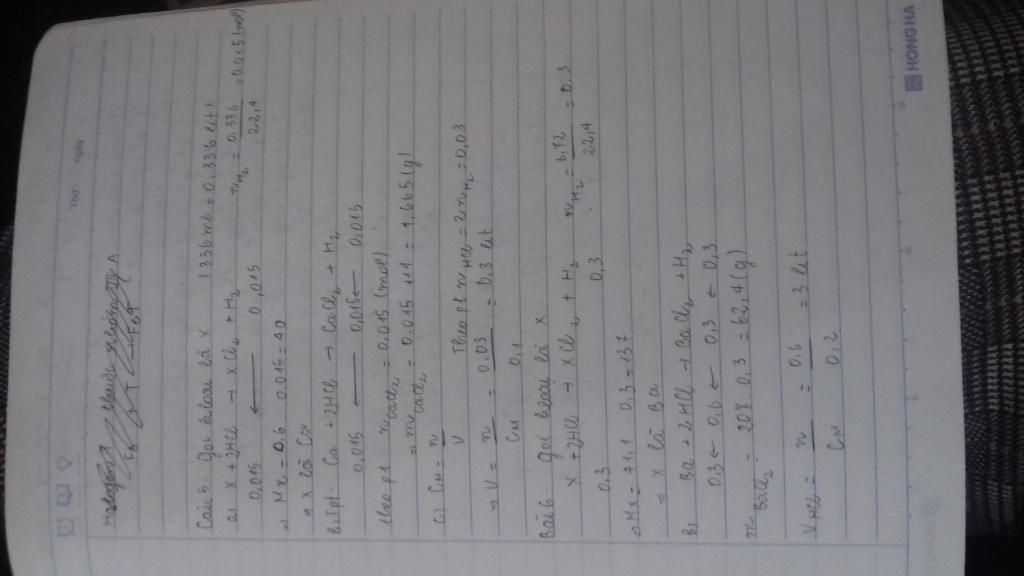 Thứ
ngày
Câu 5: gọi kloai là X 1336ml = 0,336 lít
a) X + 2HCl → XCl2 + H2 nH2 = 0,336 / 22,4 = 0,015 (mol)
0,015 ← 0,015
⇒ Mx = 0.6 : 0.015 = 40
⇒ X là Ca
b) Ptpt: Ca + 2HCl → CaCl2 + H2
0,015 ← 0,015 ← 0,015
theo pt: nCaCl2 = 0,015 (mol)
⇒ mCaCl2 = 0.015 . 111 = 1.665 (g)
c) CM = n / V Theo pt nHCl = 2nH2 = 0,03
⇒ V = n / CM = 0,03 / 0,1 = 0,3 lít
Bài 6: gọi kloai là X
X + 2HCl → XCl2 + H2 nH2 = 6,72 / 22,4 = 0.3
0.3 0,3
⇒ Mx = 41,1 : 0,3 = 137
⇒ X là Ba
b) Ba + 2HCl → BaCl2 + H2
0,3 ← 0,6 ← 0,3 ← 0,3
mBaCl2 = 208 . 0,3 = 62,4 (g)
VHCl = n / CM = 0,6 / 0,2 = 3 lít
HONG HA